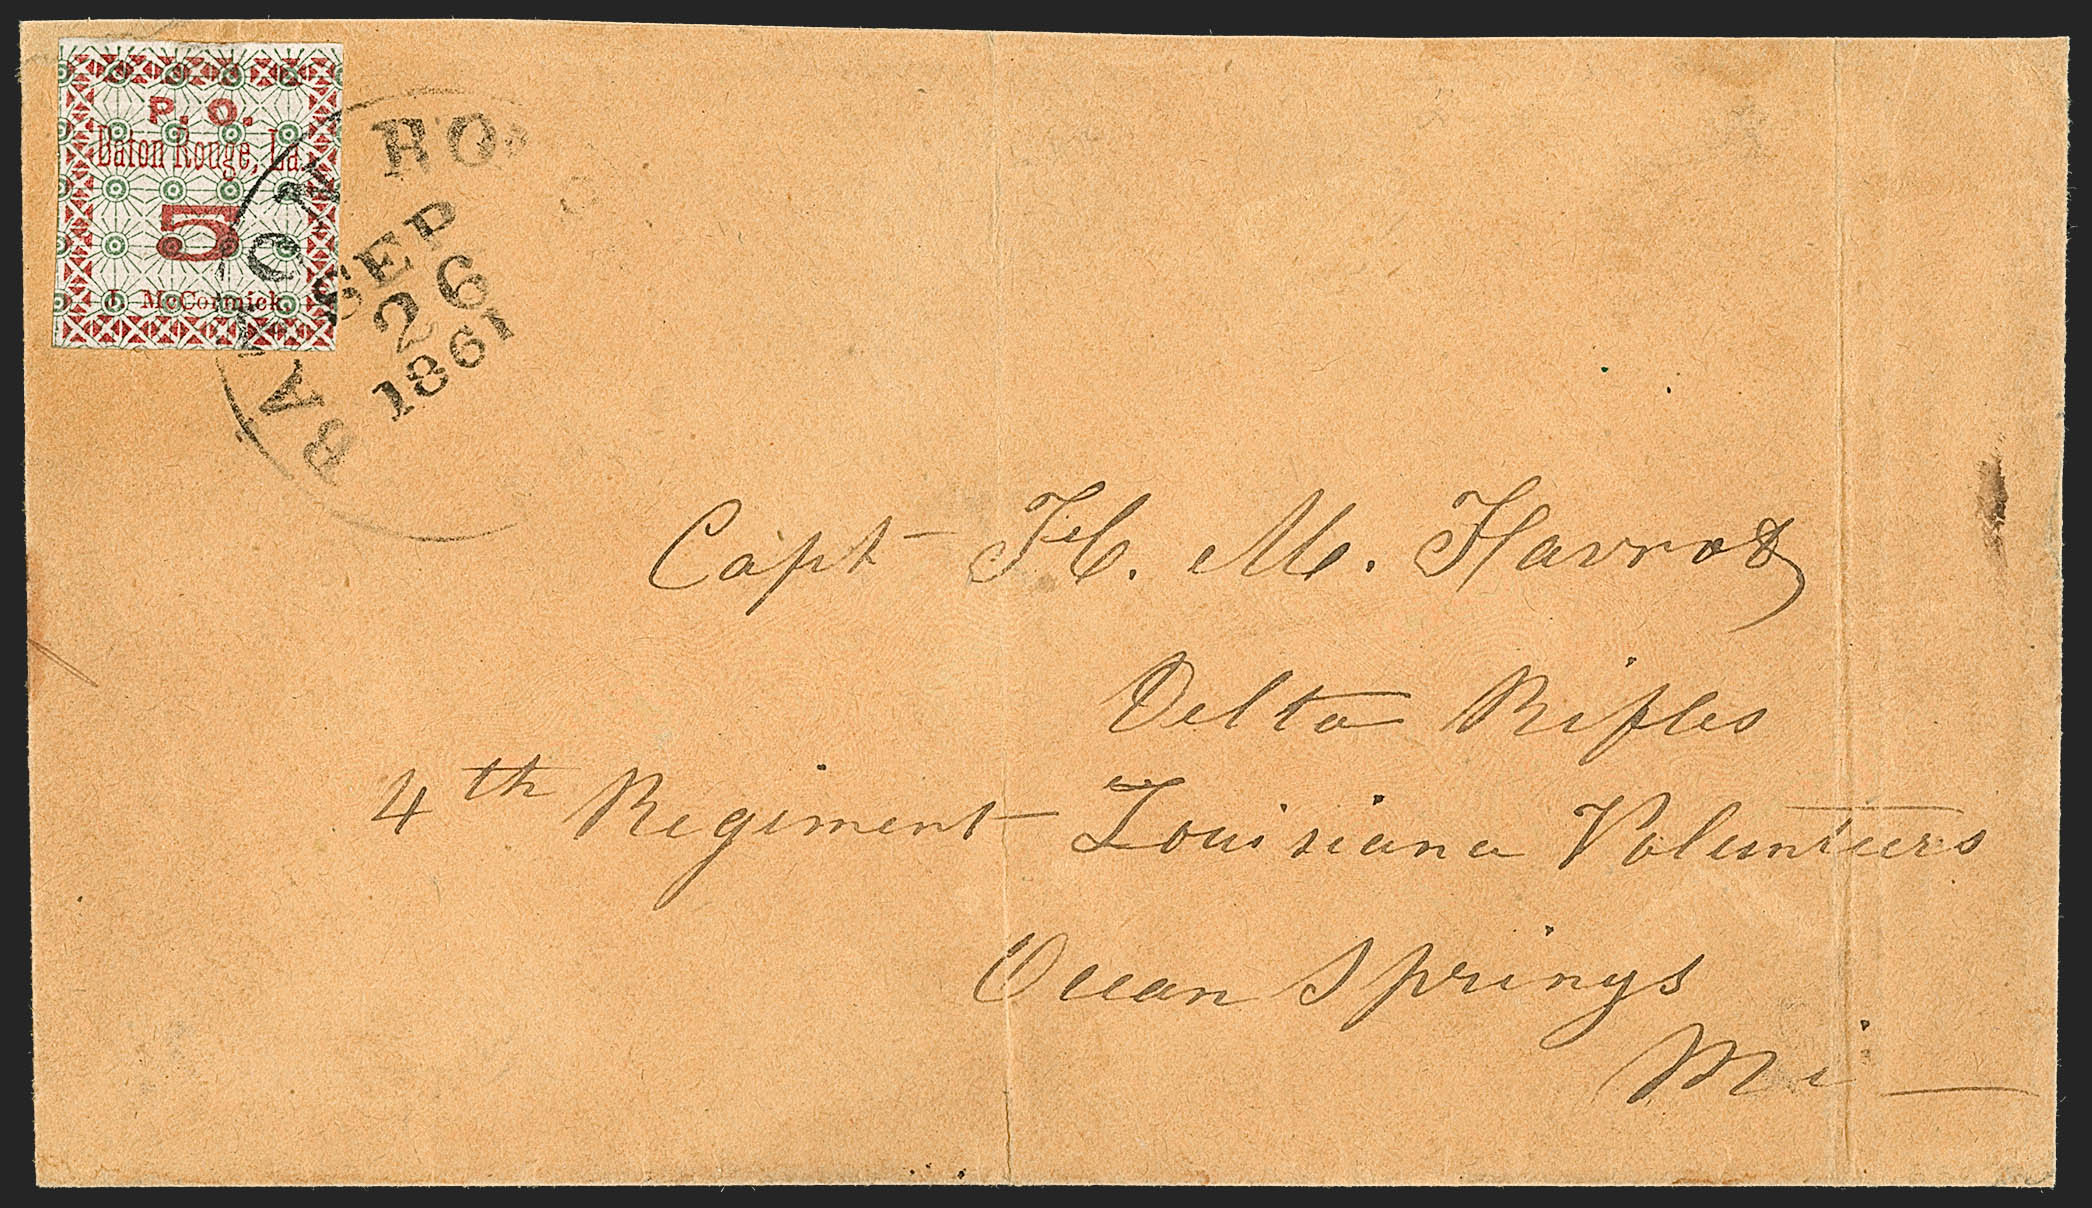 P. O.
Baton Rouge, La.
5
J. McCormick
BATON RO
SEP
26
1861
Capt H. M. Favrot
Delta Rifles
4th Regiment Louisiana Volunteers
Ocean Springs
Mi